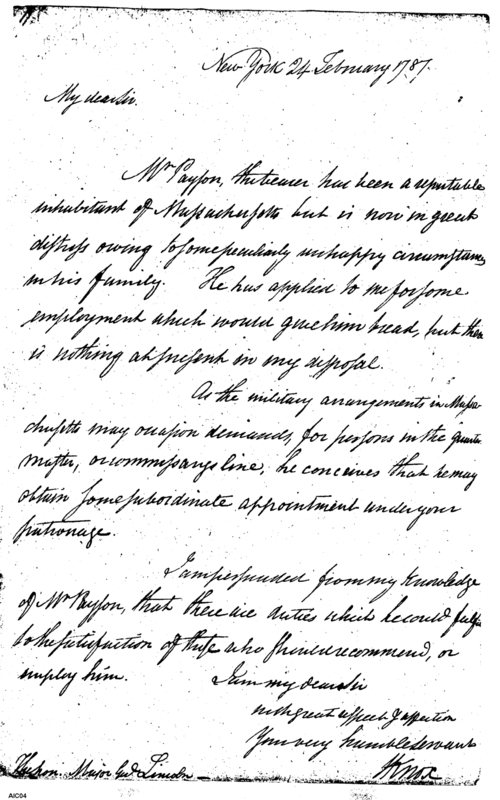 New York 24 February 1787.
My dear Sir.
Mr Payson, the bearer has been a reputable
inhabitant of Massachusetts but is now in great
distress owing to some peculiarly unhappy circumstances
in his family. He has applied to me for some
employment which would give him bread, but there
is nothing at present in my disposal.
As the military arrangements in Massa
chusetts may occasion demands, for persons in the quarter
master, or commissarys line, he conceives that he may
obtain some subordinate appointment under your
patronage.
I am persuaded from my knowledge
of Mr Payson, that there are duties which he could fulfil
to the satisfaction of those who should recommend, or
employ him.
I am my dear Sir
with great respect & affection
Your very humble servant
HKnox
Honbe Major Genl Lincoln
AIC04